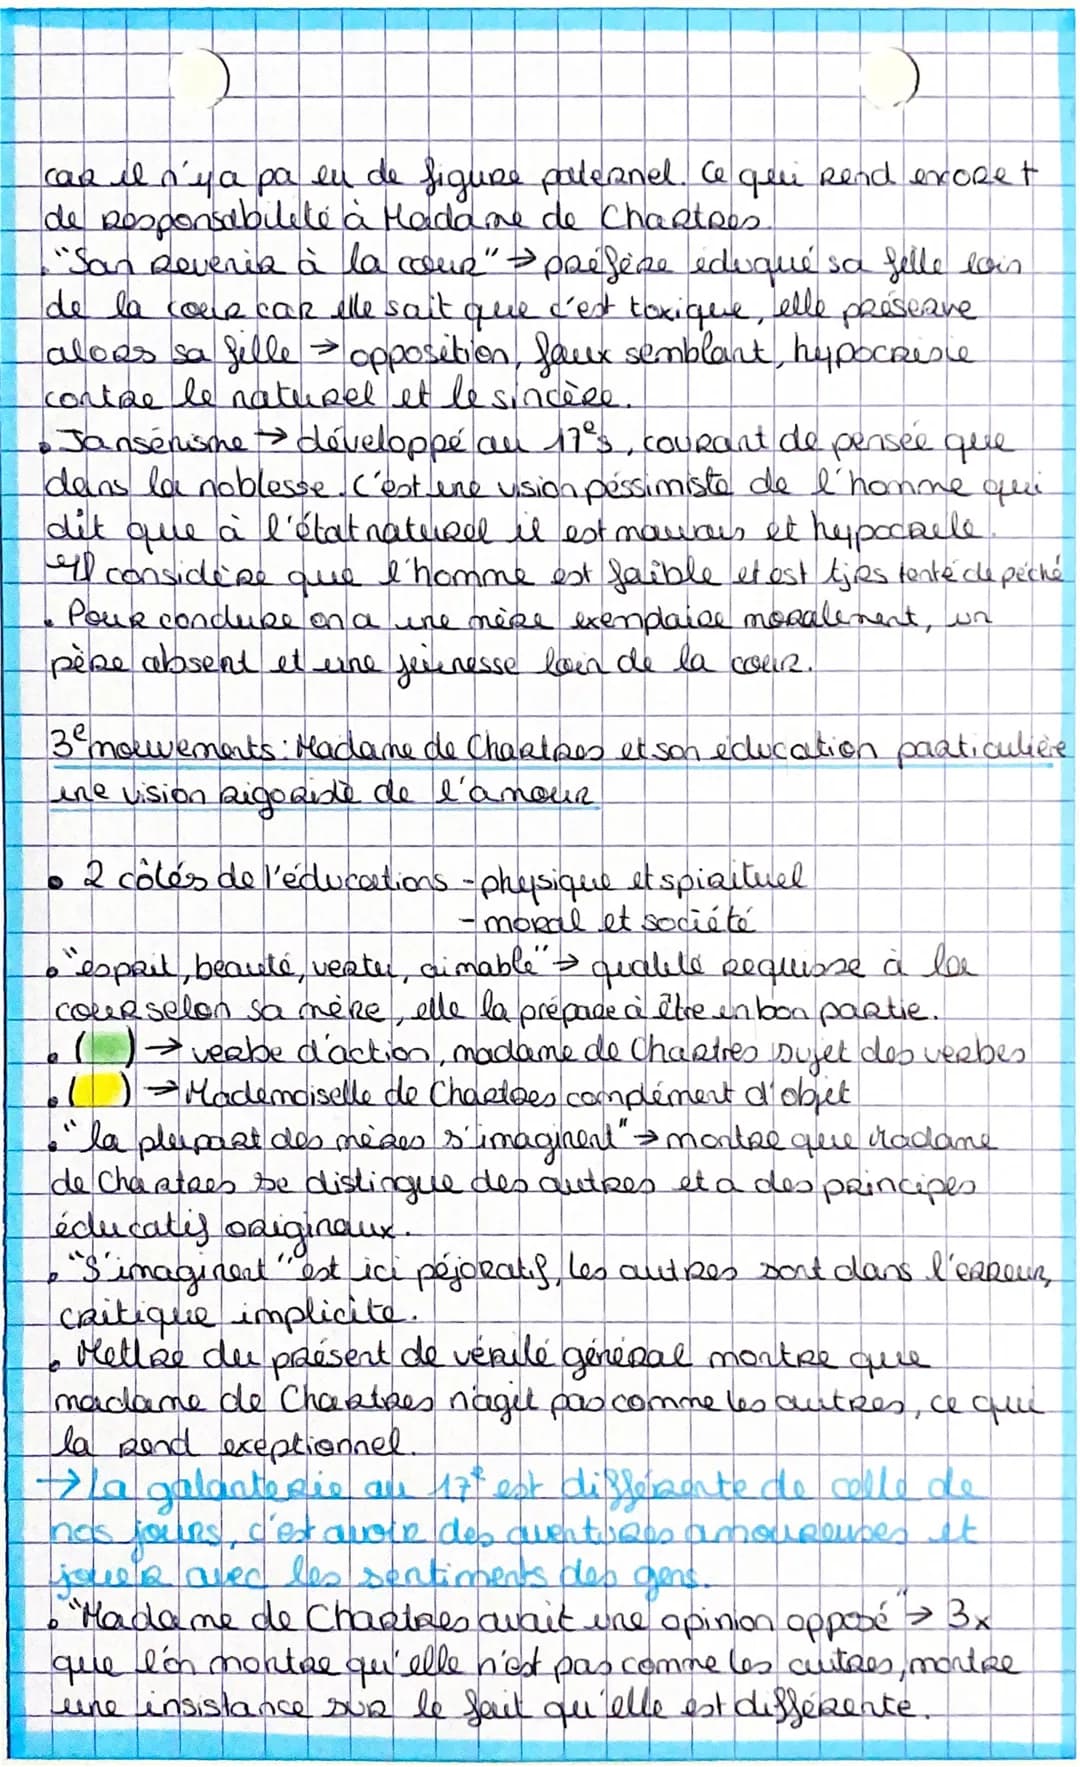 car il n'y a pa eu de figure paternel. Ce qui rend encore +
de responsabilité à Madame de Chartres.
• "San revenir à la cour" → préfère éduqué sa fille loin
de la cour car elle sait que c'est toxique, elle préserve
alors sa fille → opposition, faux semblant, hypocrisie
contre le naturel et le sincère.
• Jansénisme → développé au 17e s, courant de pensée que
dans la noblesse. C'est une vision péssimiste de l'homme qui
dit que à l'état naturel il est mauvais et hypocrite.
Il considère que l'homme est faible et est tjrs tenté de péché
• Pour conclure on a une mère exemplaire moralement, un
père absent et une jeunesse loin de la cour.
3e mouvements : Madame de Chartres et son éducation particulière
une vision rigoriste de l'amour
• 2 côtés de l'éducations - physique et spirituel
- moral et société
• "esprit, beauté, vertu, aimable" → qualité requisse à la
cour selon sa mère, elle la prépare à être un bon partie.
• ( ) → verbe d'action, madame de Chartres sujet des verbes
• ( ) → Mademoiselle de Chartres complément d'objet
• "la plupart des mères s'imaginent" → montre que Madame
de Chartres se distingue des autres et a des principes
éducatifs originaux.
• "S'imaginent" est ici péjoratif, les autres sont dans l'erreur,
critique implicite.
• Mettre du présent de vérité général montre que
madame de Chartres n'agit pas comme les autres, ce qui
la rend exeptionnel.
→ La galanterie au 17e est différente de celle de
nos jours, c'est avoir des aventures amoureuses et
jouer avec les sentiments des gens.
• "Madame de Chartres avait une opinion opposé" → 3x
que l'on montre qu'elle n'est pas comme les autres, montre
une insistance sur le fait qu'elle est différente.